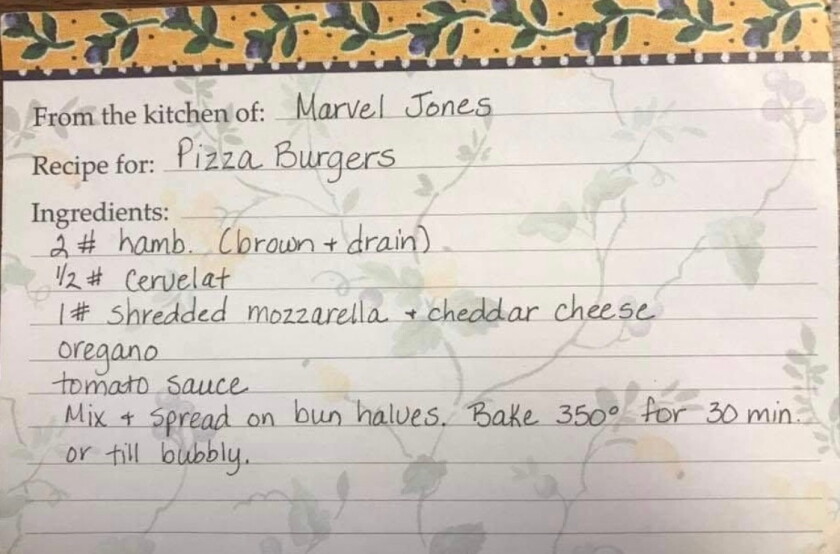 From the kitchen of: Marvel Jones
Recipe for: Pizza Burgers
Ingredients:
2 # hamb. (brown + drain)
1/2 # Cervelat
1# shredded mozzarella + cheddar cheese
oregano
tomato sauce
Mix + spread on bun halves. Bake 350° for 30 min.
or till bubbly.